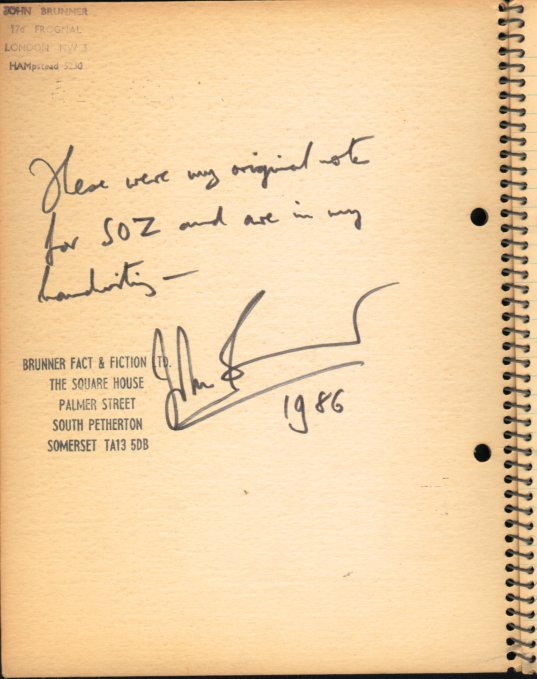 JOHN BRUNNER
17d FROGNAL
LONDON NW 3
HAMpstead 5230
These were my original note
for SOZ and are in my
handwriting —
John Brunner
1986
BRUNNER FACT & FICTION LTD.
THE SQUARE HOUSE
PALMER STREET
SOUTH PETHERTON
SOMERSET TA13 5DB